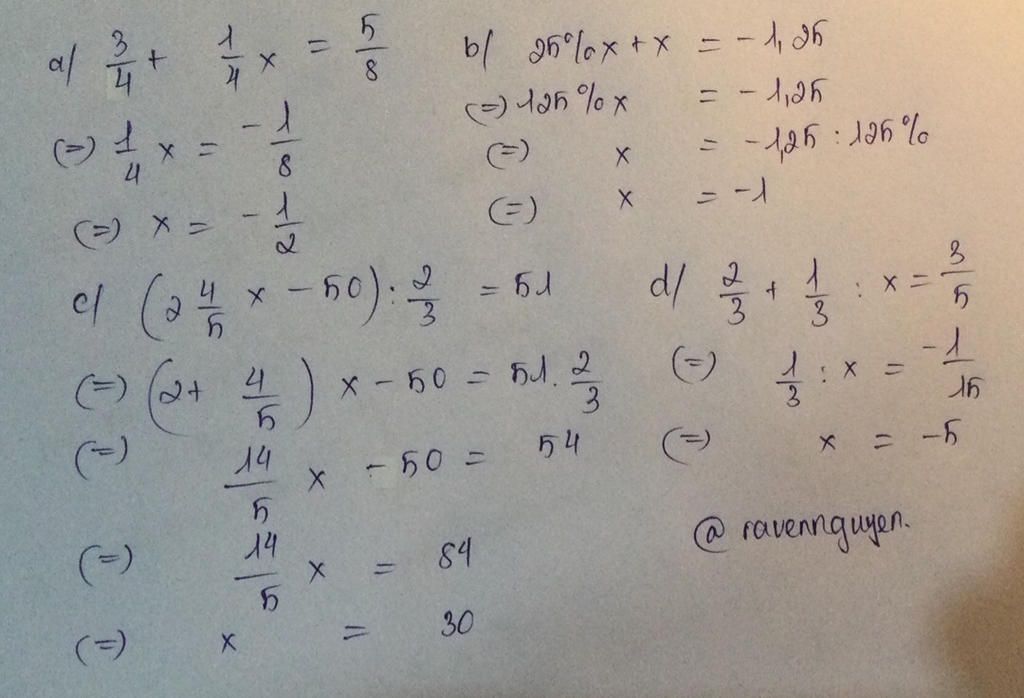 a/ 3/4 + 1/4 x = 5/8
(=) 1/4 x = -1/8
(=) x = -1/2
b/ 25%x + x = -1,25
(=) 125%x = -1,25
(=) x = -1,25 : 125%
(=) x = -1
c/ (2 4/5 x - 50) : 2/3 = 51
(=) (2 + 4/5) x - 50 = 51 . 2/3
(=) 14/5 x - 50 = 54
(=) 14/5 x = 84
(=) x = 30
d/ 2/3 + 1/3 : x = 3/5
(=) 1/3 : x = -1/15
(=) x = -5
@ ravennguyen.